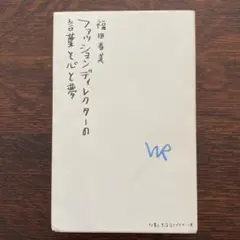 福田春美
ファッションディレクターの
言葉と心と夢